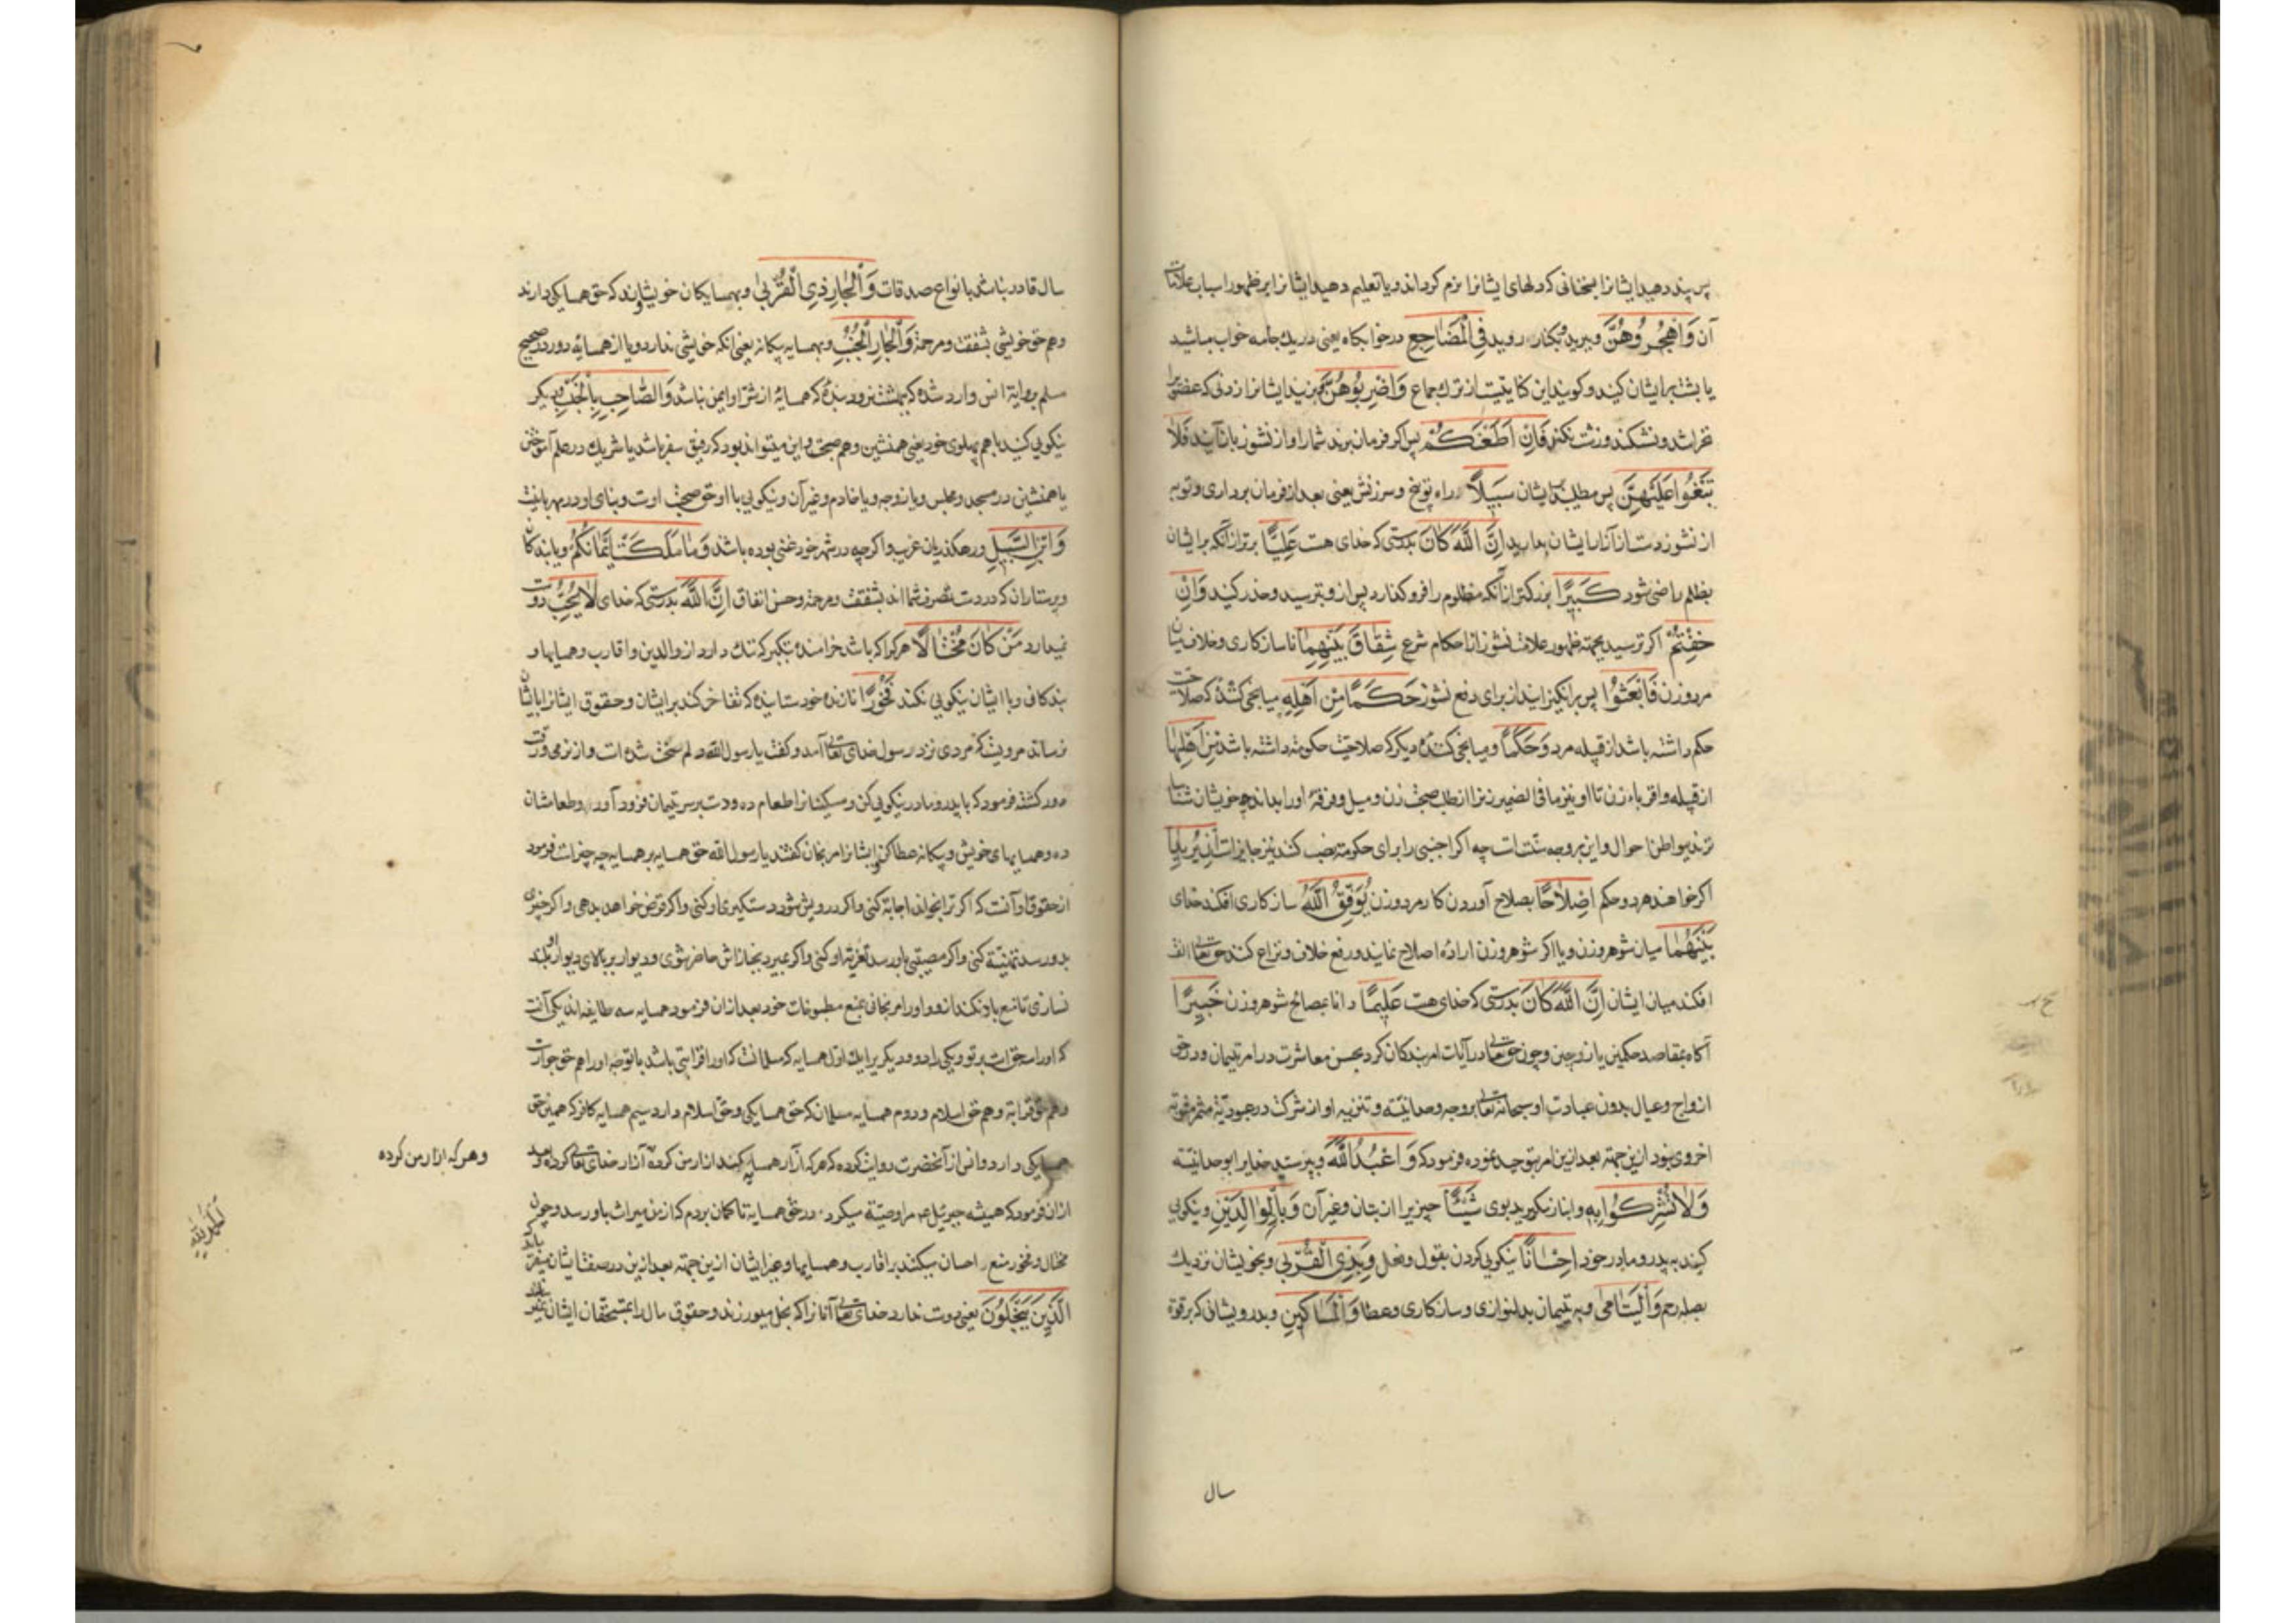 پس پند دهید ایشانرا بسخنانی که دلهای ایشانرا نرم کرداند و یا تعلیم دهید ایشانرا بر ظهور اسباب علامات
آن وَاهْجُرُوهُنَّ وببرید و بکنار روید فِی الْمَضَاجِعِ در خوابکاه یعنی در یك جامه خواب مباشید
یا پشت بر ایشان کنید و کویند این کنایتست از ترك جماع وَاضْرِبُوهُنَّ و بزنید ایشانرا زدنی که عضویرا
نخراشد و نشکند و زشت نکند فَاِنْ اَطَعْنَكُمْ پس اکر فرمان برند شما را و از نشوز باز آیند فَلَا
تَبْغُوا عَلَیْهِنَّ پس مطلبید بایشان سَبِیلًا راه توبیخ و سرزنش یعنی بعد از فرمان برداری و توبه
از نشوز دست از آزار ایشان بدارید اِنَّ اللّٰهَ كَانَ بدرستی که خدای هست عَلِیًّا برتر از آنکه بر ایشان
بظلم راضی شود كَبِیرًا بزرکتر از آنکه مظلوم را فرو کذارد پس از و بترسید و حذر کنید وَاِنْ
خِفْتُمْ اکر ترسید بجهته ظهور علامت نشوز از احکام شرع شِقَاقَ بَیْنِهِمَا ناسازکاری و خلاف میان
مرد و زن فَابْعَثُوا پس برانکیزانید از برای دفع نشوز حَكَمًا مِنْ اَهْلِهِ میانجی کننده که صلاحیت
حکم داشته باشد از قبیله مرد وَحَكَمًا و میانجی کننده دیکر که صلاحیت حکومته داشته باشد مِنْ اَهْلِهَا
از قبیله و اقرباء زن تا او نیز ما فی الضمیر زنرا از طلب صحبت زن و میل و فرقهٔ او را بداند چه خویشان
ترند ببواطن احوال و این بر وجه سنّت است چه اکر اجنبی را برای حکومته نصب کند نیز جایزاست اِنْ یُرِیدَا
اکر خواهند هر دو حکم اِصْلَاحًا بصلاح آوردن کار مرد و زن یُوَفِّقِ اللّٰهُ سازکاری افکند خدای
بَیْنَهُمَا میان شوهر و زن و یا اکر شوهر و زن ارادهٔ اصلاح نمایند و رفع خلاف و نزاع کنند حق تعالی الفت
افکند میان ایشان اِنَّ اللّٰهَ كَانَ بدرستی که خدای هست عَلِیمًا دانا بمصالح شوهر و زن خَبِیرًا
آکاه بمقاصد حکمین یا زوجین و چون حق تعالی در آیات امر بندکان کرد بحسن معاشرت در امر یتیمان و در حق
ازواج و عیال بدون عبادت او سبحانه تعالی بر وجه وحدانیته و تنزیه او از شرکت در عبودیته مثمر مثوبه
اخروی نبود ازین جهته بعد ازین امر بتوحید نموده فرمود که وَاعْبُدُوا اللّٰهَ و بپرستید خدایرا بوحدانیته
وَلَا تُشْرِكُوا بِهِ و انباز مکیرید بوی شَیْئًا چیزیرا از بتان و غیر آن وَبِالْوَالِدَیْنِ و نیکویی
کنید به پدر و مادر خود اِحْسَانًا نیکویی کردن بقول و فعل وَبِذِی الْقُرْبٰی و بخویشان نزدیك
بصله رحم وَالْیَتَامٰی و به یتیمان بدلنوازی و سازکاری و عطا وَالْمَسَاكِینِ و بدرویشانی که بر قوة
سال
سال قادر نباشد بانواع صدقات وَالْجَارِ ذِی الْقُرْبٰی و بهمسایکان خویشاوند که حق همسایکی دارند
و هم حق خویشی بشفقت و مرحمة وَالْجَارِ الْجُنُبِ و بهمسایه بیکانه یعنی آنکه خویشی ندارد و یا از همسایهٔ دور در صحیح
مسلم بروایة انس وارد شده که ببهشت نرود بندهٔ که همسایهٔ از شرّ او ایمن نباشد وَالصَّاحِبِ بِالْجَنْبِ دیکر
نیکویی کنید با هم پهلوی خود یعنی همنشین و هم صحبت و این میتواند بود که رفیق سفر باشد یا شریك در علم آموختن
یا همنشین در مسجد و مجلس و یا زوجه و یا خادم و غیر آن و نیکویی با او حق صحبت اوست
وَابْنِ السَّبِیلِ و رهکذریان غریب و اکر چه در شهر خود غنی بوده باشد وَمَا مَلَكَتْ اَیْمَانُكُمْ و یا بندکان
و پرستاران که در دست تصرف شما اند بشفقت و مرحمة و حسن انفاق اِنَّ اللّٰهَ بدرستی که خدای لَا یُحِبُّ دوست
نمیدارد مَنْ كَانَ مُخْتَالًا هر کرا که باشد خرامنده بتکبر که ننك دارد از والدین و اقارب و همسایها و
بندکان و با ایشان نیکویی نکند فَخُورًا نازنده خود ستاینده که تفاخر کند بر ایشان و حقوق ایشانرا بایشان
نرساند مرویست که مردی نزد رسول خدای تعالی آمد و کفت یا رسول الله دلم سخت شده است و از نرمی و رقت
دور کشته فرمود که با پدر و مادر نیکویی کن و مسکینانرا طعام ده و دست بر سر یتیمان فرود آور و طعامشان
ده و همسایهای خویش و بیکانه عطا کن و ایشانرا مرنجان کفتند یا رسول الله حق همسایه بر همسایه چه چیزاست فرمود
از حقوق او آنست که اکر ترا بخواند اجابة کنی و اکر درویش شود دستکیری او کنی و اکر قرض خواهد بدهی و اکر خیری
بدو رسد تهنیة کنی و اکر مصیبتی باو رسد تعزیته او کنی و اکر بمیرد بجنازاش حاضر شوی و دیوار بر بالای دیوار او بلند
نسازی تا منع باد نکند از و و او را مرنجانی بمنع مطبوخات خود بعد از ان فرمود همسایه سه طایفه اند یکی آنست
که او را سه حق است بر تو و یکی را دو و دیکریرا یك اول همسایه که مسلمانست که او را قرابتی باشد با تو چه او را هم حق جواراست
و هم حق قرابة و هم حق اسلام و دوم همسایه مسلمان که حق همسایکی و حق اسلام دارد سیم همسایه کافر که همین حق
همسایکی دارد و انس از آنحضرت روایت کرده که هر که آزار همسایه کند آزار من کرده آزار خدای تعالی کرده و بعد
از ان فرمود که همیشه جبرئیل مرا وصیّة میکرد در حق همسایه تا کمان بردم که از من میراث باو رسد و چون
مختال و فخور منع احسان میکنند بر اقارب و همسایها و غیر ایشان ازین جهته بعد ازین در صفت ایشان میفرماید
الَّذِینَ یَبْخَلُونَ یعنی دوست ندارد خدای تعالی آنانرا که بخل میورزند و حقوق مال را بمستحقان ایشان
و هر که ازار من کرده